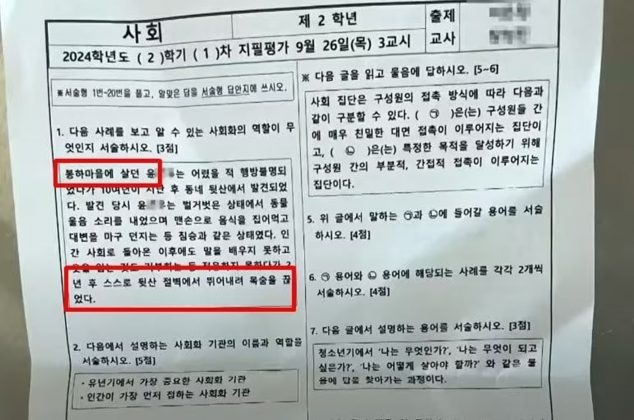 사회
제 2 학년
출제
교사
2024학년도 ( 2 )학기 ( 1 )차 지필평가 9월 26일(목) 3교시
※서술형 1번~20번을 풀고, 알맞은 답을 서술형 답안지에 쓰시오.
1. 다음 사례를 보고 알 수 있는 사회화의 역할이 무
엇인지 서술하시오. [3점]
봉하마을에 살던 윤 는 어렸을 적 행방불명되
었다가 10여년이 지난 후 동네 뒷산에서 발견되었
다. 발견 당시 윤 는 벌거벗은 상태에서 동물
울음 소리를 내었으며 맨손으로 음식을 집어먹고
대변을 마구 던지는 등 짐승과 같은 상태였다. 인
간 사회로 돌아온 이후에도 말을 배우지 못하고
년 후 스스로 뒷산 절벽에서 뛰어내려 목숨을 끊
었다.
2. 다음에서 설명하는 사회화 기관의 이름과 역할을
서술하시오. [5점]
· 유년기에서 가장 중요한 사회화 기관
· 인간이 가장 먼저 접하는 사회화 기관
※ 다음 글을 읽고 물음에 답하시오. [5~6]
사회 집단은 구성원의 접촉 방식에 따라 다음과
같이 구분할 수 있다. ( ㉠ )은(는) 구성원들 간
에 매우 친밀한 대면 접촉이 이루어지는 집단이
고, ( ㉡ )은(는) 특정한 목적을 달성하기 위해
구성원 간의 부분적, 간접적 접촉이 이루어지는
집단이다.
5. 위 글에서 말하는 ㉠과 ㉡에 들어갈 용어를 서술
하시오. [4점]
6. ㉠ 용어와 ㉡ 용어에 해당되는 사례를 각각 2개씩
서술하시오. [4점]
7. 다음 글에서 설명하는 용어를 서술하시오. [3점]
청소년기에서 '나는 무엇인가?', '나는 무엇이 되고
싶은가?', '나는 어떻게 살아야 할까?' 와 같은 물
음에 답을 찾아가는 과정이다.